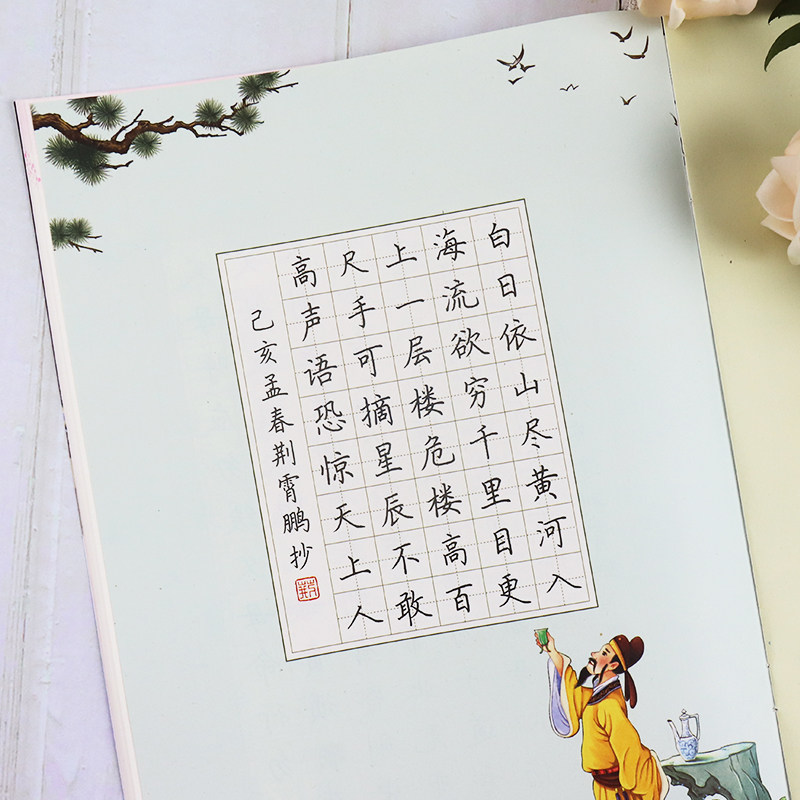 白日依山尽黄河入
海流欲穷千里目更
上一层楼危楼高百
尺手可摘星辰不敢
高声语恐惊天上人
己亥孟春荆霄鹏抄
荆